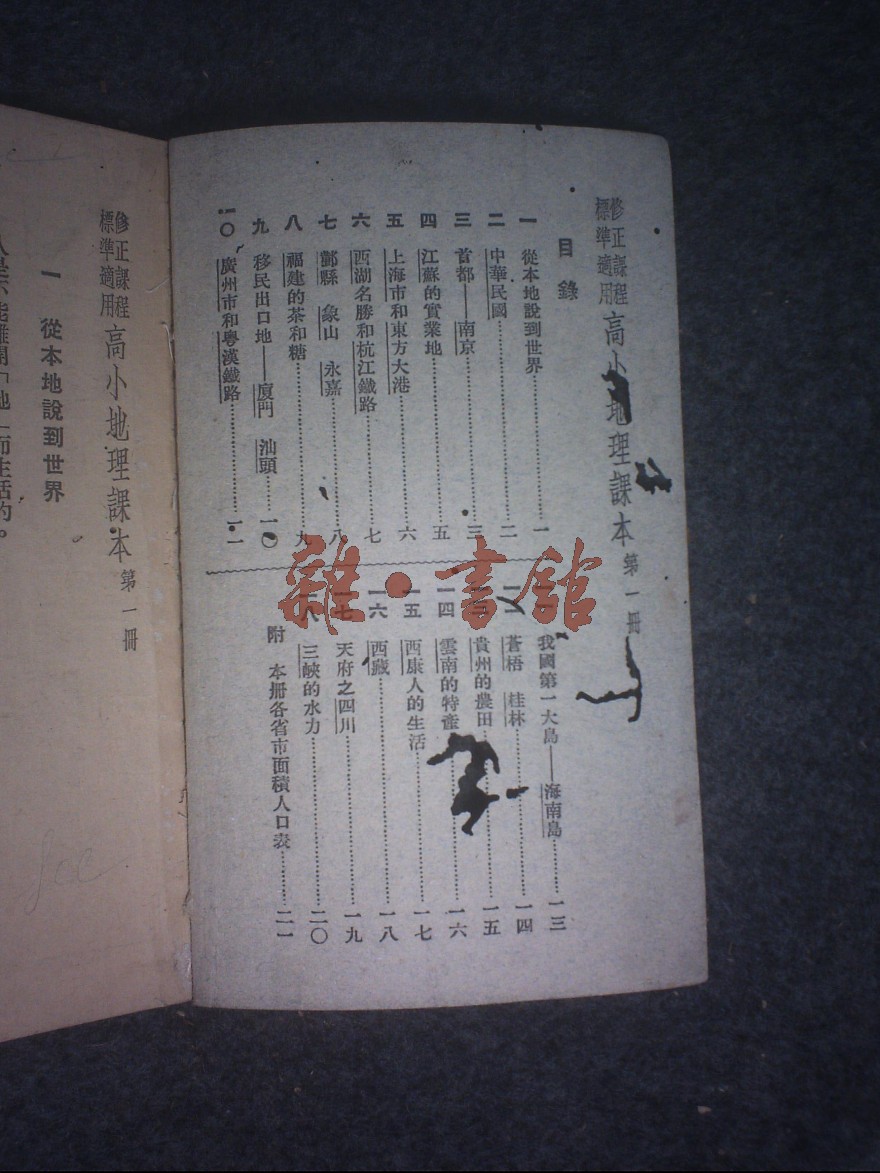 修正課程標準適用 高小地理課本 第一冊
目錄
一 從本地說到世界 一
二 中華民國 二
三 首都——南京 三
四 江蘇的實業地 五
五 上海市和東方大港 六
六 西湖名勝和杭江鐵路 七
七 鄞縣 象山 永嘉 八
八 福建的茶和糖 九
九 移民出口地——廈門 汕頭 一〇
一〇 廣州市和粵漢鐵路 一二
我國第一大島——海南島 一三
蒼梧 桂林 一四
貴州的農田 一五
一四 雲南的特產 一六
一五 西康人的生活 一七
一六 西藏 一八
一七 天府之四川 一九
一八 三峽的水力 二〇
附 本册各省市面積人口表 二一
雜·書館
修正課程標準適用 高小地理課本 第一冊
一 從本地說到世界
能離開「地」而生活的。